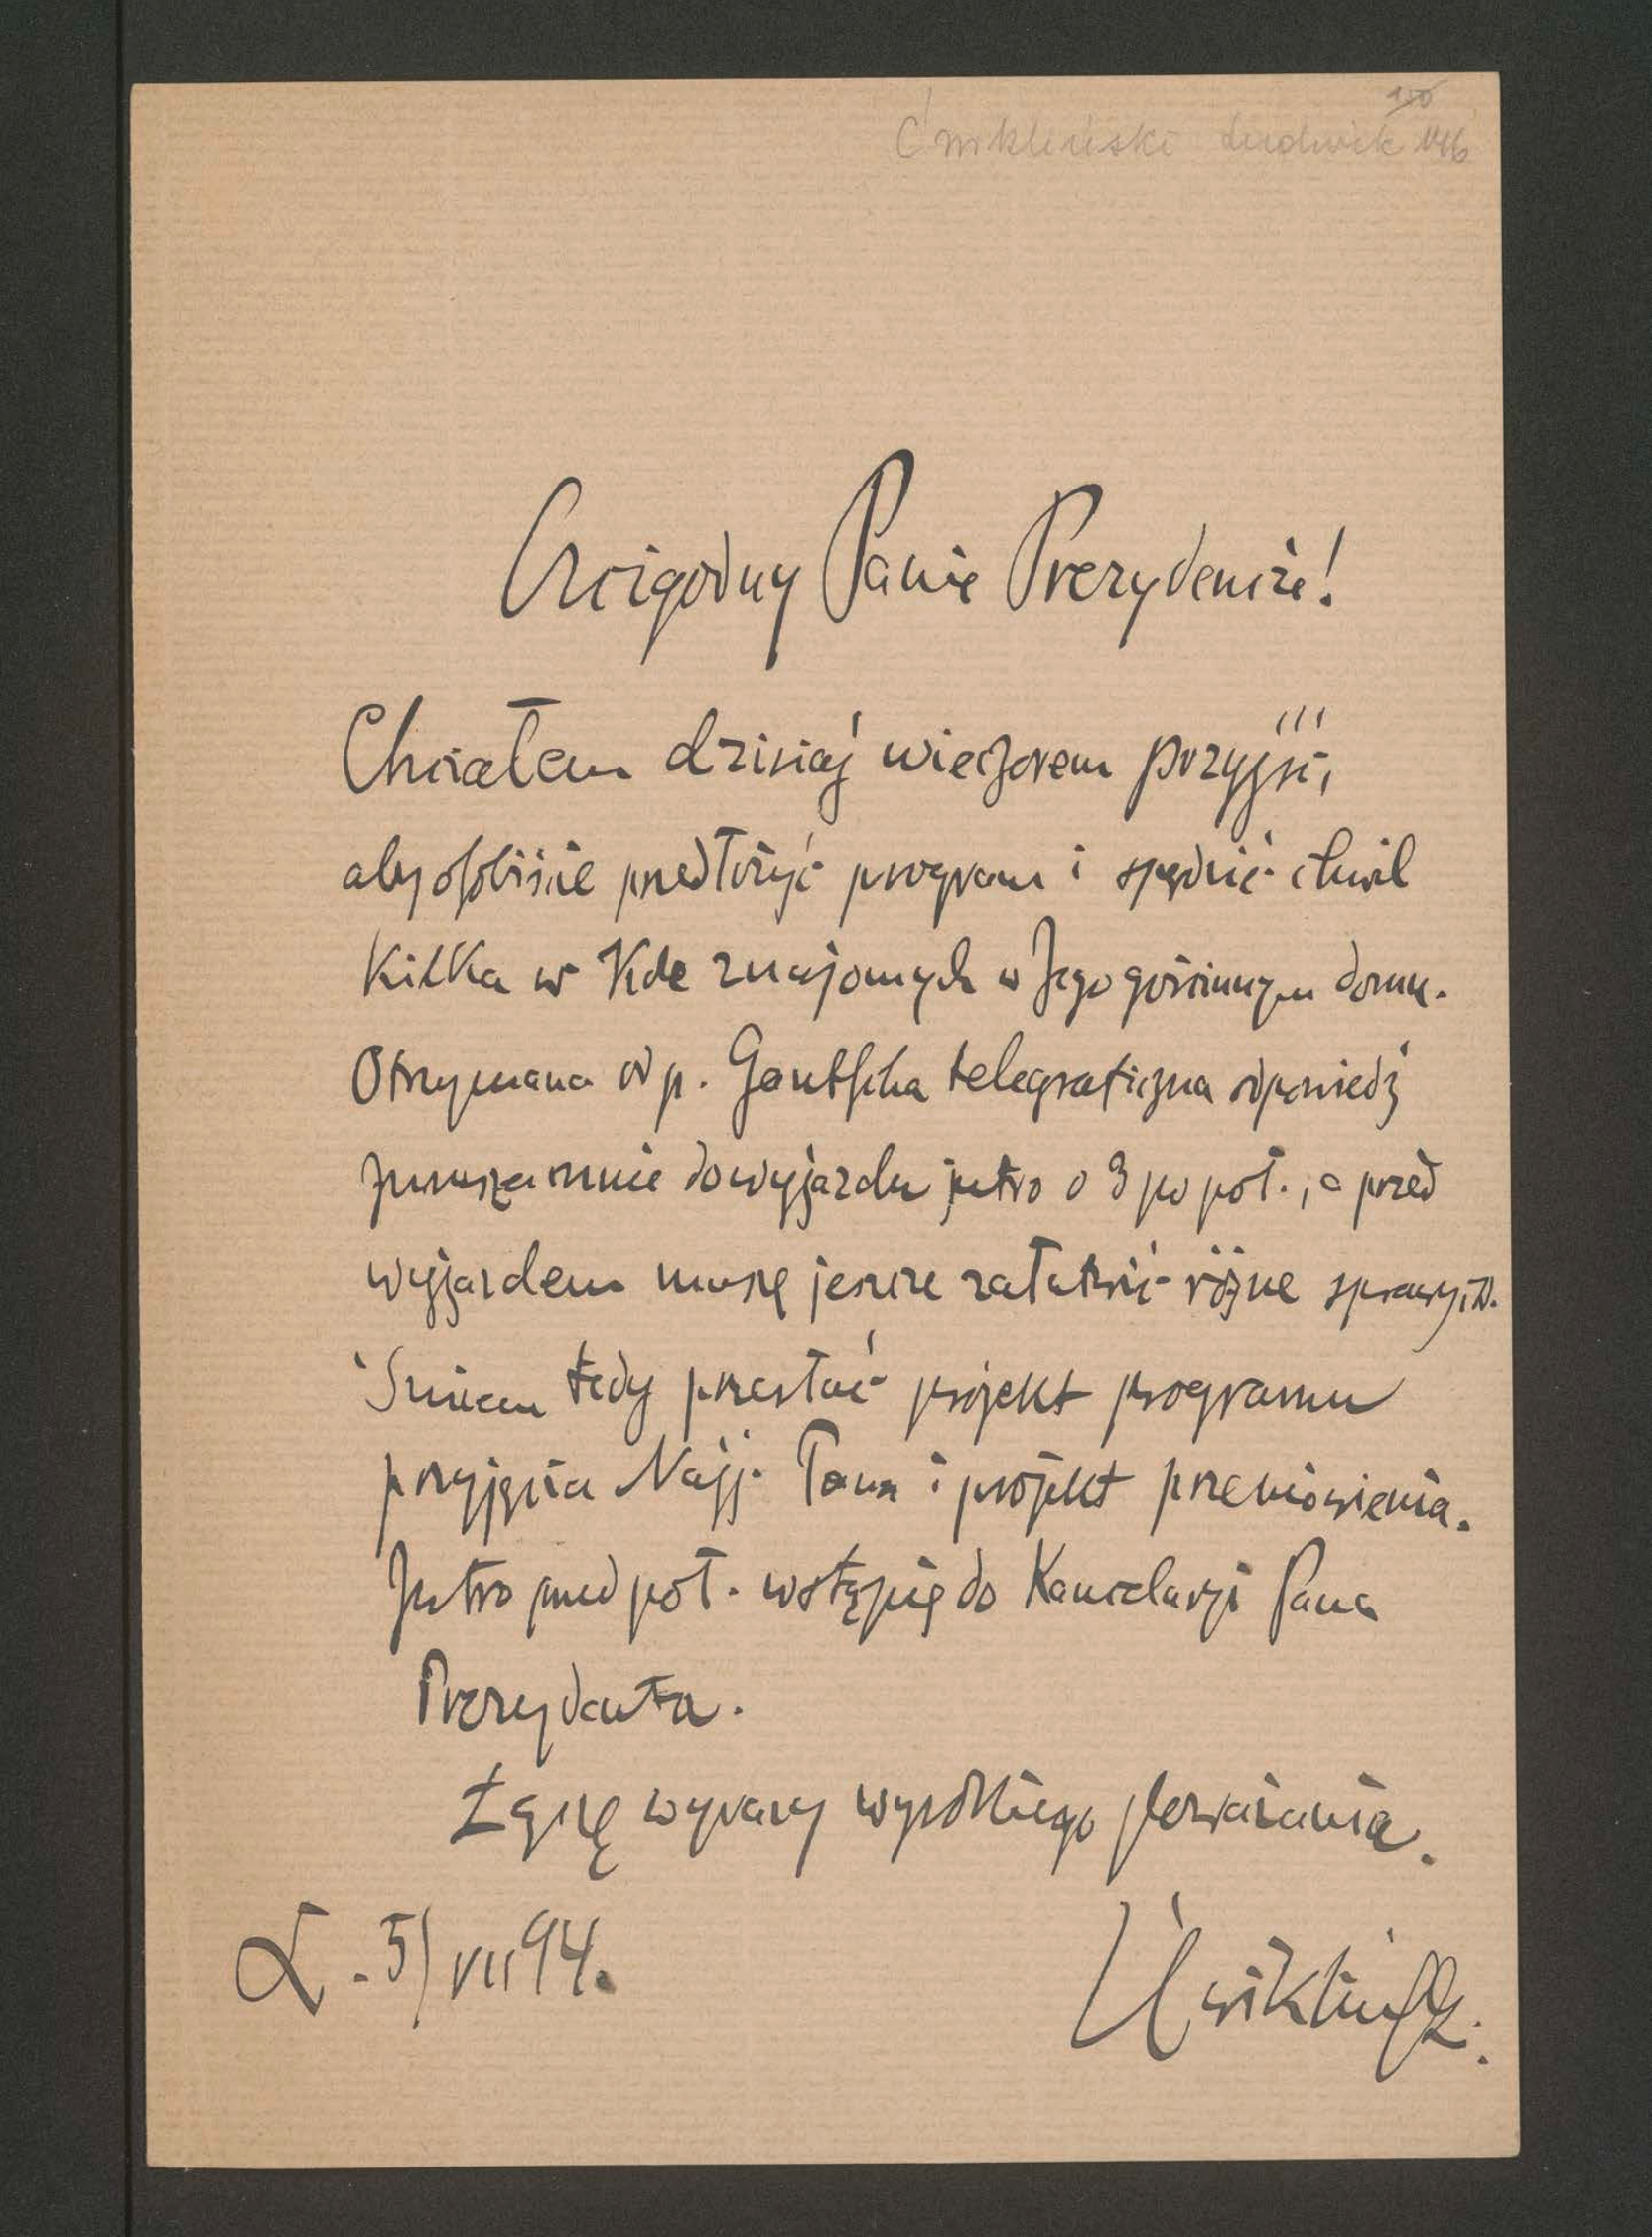 150
Ćwikliński Ludwik 146
Czcigodny Panie Prezydencie!
Chciałem dzisiaj wieczorem przyjść,
aby osobiście przedłożyć program i spędzić chwil
kilka w kole znajomych w Jego gościnnym domu.
Otrzymana od p. Gautscha telegraficzna odpowiedź
zmusza mnie do wyjazdu jutro o 3 po poł., a przed
wyjazdem muszę jeszcze załatwić różne sprawy.
Śmiem tedy przesłać projekt programu
przyjęcia Najj. Pana i projekt przemówienia.
Jutro przed poł. wstąpię do Kancelaryi Pana
Prezydenta.
Łączę wyrazy wysokiego poważania.
L. 5/VII 94.
Ćwikliński.